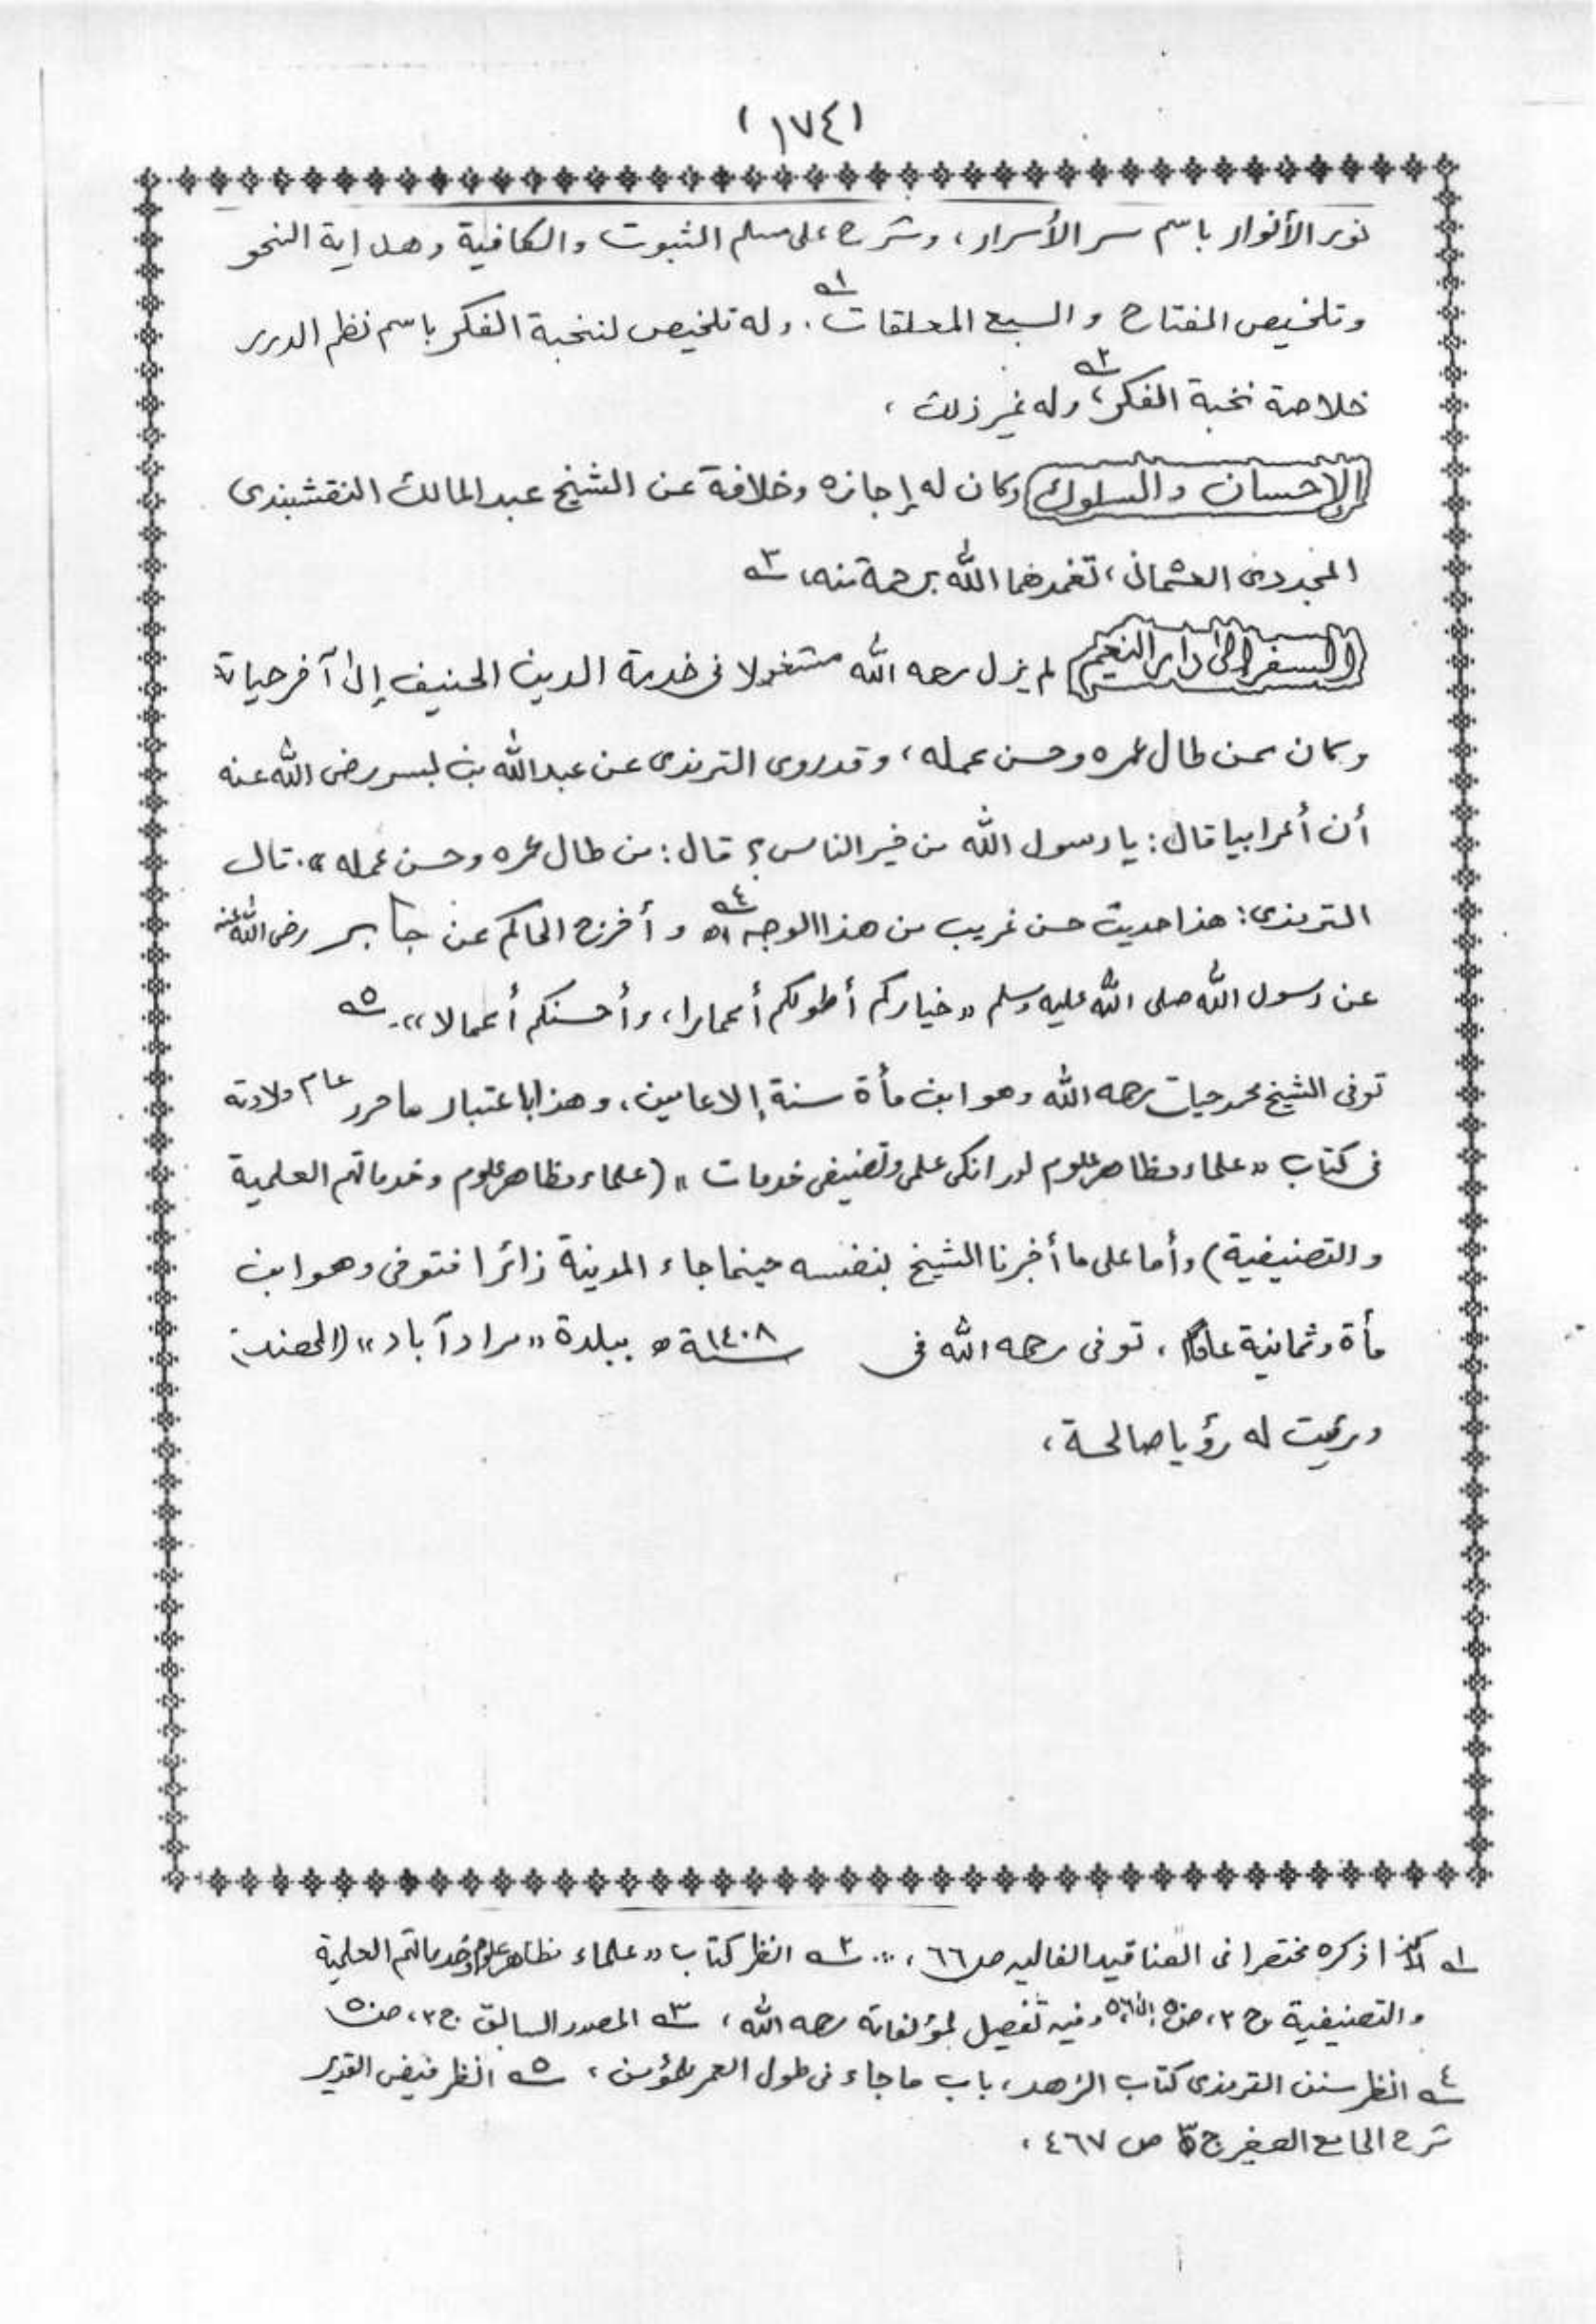 (١٧٤)
نور الأنوار باسم سر الأسرار، وشرح على مسلم الثبوت والكافية وهداية النحو
وتلخيص المفتاح والسبع المعلقات.١ وله تلخيص لنخبة الفكر باسم نظم الدرر
خلاصة نخبة الفكر،٢ وله غير ذلك،
الإحسان والسلوك وكان له إجازه وخلافة عن الشيخ عبد المالك النقشبندى
المجددى العثمانى، تغمدهما الله برحمة منه،٣
السفر إلى دار النعيم لم يزل رحمه الله مشغولا فى خدمة الدين الحنيف إلى آخر حياته
وكان ممن طال عمره وحسن عمله، وقد روى الترمذى عن عبد الله بن بسر رضى الله عنه
أن أعرابيا قال: يا رسول الله من خير الناس؟ قال: من طال عمره وحسن عمله». قال
الترمذى: هذا حديث حسن غريب من هذا الوجه اه٤ وأخرج الحاكم عن جابر رضى الله عنه
عن رسول الله صلى الله عليه وسلم «خياركم أطولكم أعمارا، وأحسنكم أعمالا».٥
توفى الشيخ محمد حيات رحمه الله وهو ابن مأة سنة إلا عامين، وهذا باعتبار ما حرر عام ولادته
فى كتاب «علماء مظاهر علوم اور انكى علمى وتصنيفى خدمات» (علماء مظاهر علوم وخدماتهم العلمية
والتصنيفية) وأما على ما أخبرنا الشيخ بنفسه حينما جاء المدينة زائرا فتوفى وهو ابن
مأة وثمانية عاما، توفى رحمه الله فى سنة ١٤٠٨ه ببلدة «مراد آباد» (الهند)
ورئيت له رؤيا صالحة،
١ ذكره مختصرا فى العناقيد الغاليه ص ٦٦، ٢ انظر كتاب «علماء مظاهر علوم وخدماتهم العلمية
والتصنيفية ج ٢، وفيه تفصيل لمؤلفاته رحمه الله، ٣ المصدر السابق ج ٢،
٤ انظر سنن الترمذى كتاب الزهد، باب ما جاء فى طول العمر للمؤمن، ٥ انظر فيض القدير
شرح الجامع الصغير ج ٣ ص ٤٦٧،